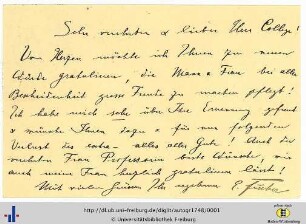 Sehr verehrter & lieber Herr College!
Von Herzen möchte ich Ihnen zu neuen
Würde gratulieren, die Mann & Frau bei aller
Bescheidenheit grosse Freude zu machen pflegt!
Ich habe mich sehr über Ihre Ernennung gefreut
& wünsche Ihnen dazu & für nun folgenden
Verlust des extra- alles alles Gute! Auch die
verehrten Frau Professorin beste Wünsche, wie
auch meine Frau herzlich gratulieren lässt!
Mit vielen Grüssen Ihr ergebener E. Fischer
http://dl.ub.uni-freiburg.de/diglit/autogr1748/0001
© Universitätsbibliothek Freiburg